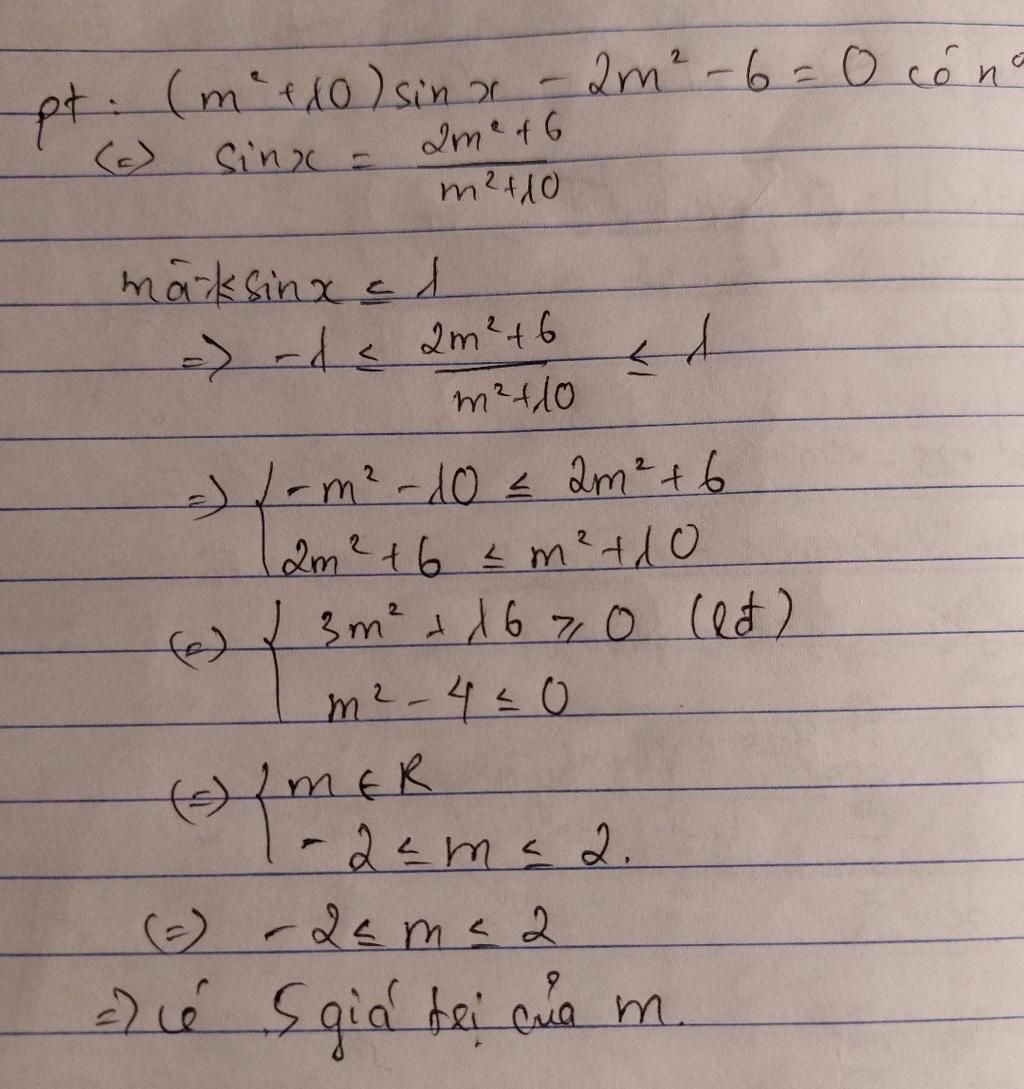 pt : (m²+10)sin x - 2m² - 6 = 0 có n°
(=) sinx = (2m²+6)/(m²+10)
mà -1 ≤ sinx ≤ 1
=> -1 ≤ (2m²+6)/(m²+10) ≤ 1
=> { -m² - 10 ≤ 2m² + 6
2m² + 6 ≤ m² + 10
(=) { 3m² + 16 ≥ 0 (lđ)
m² - 4 ≤ 0
(=) { m ∈ R
-2 ≤ m ≤ 2.
(=) -2 ≤ m ≤ 2
=> có 5 giá trị của m.